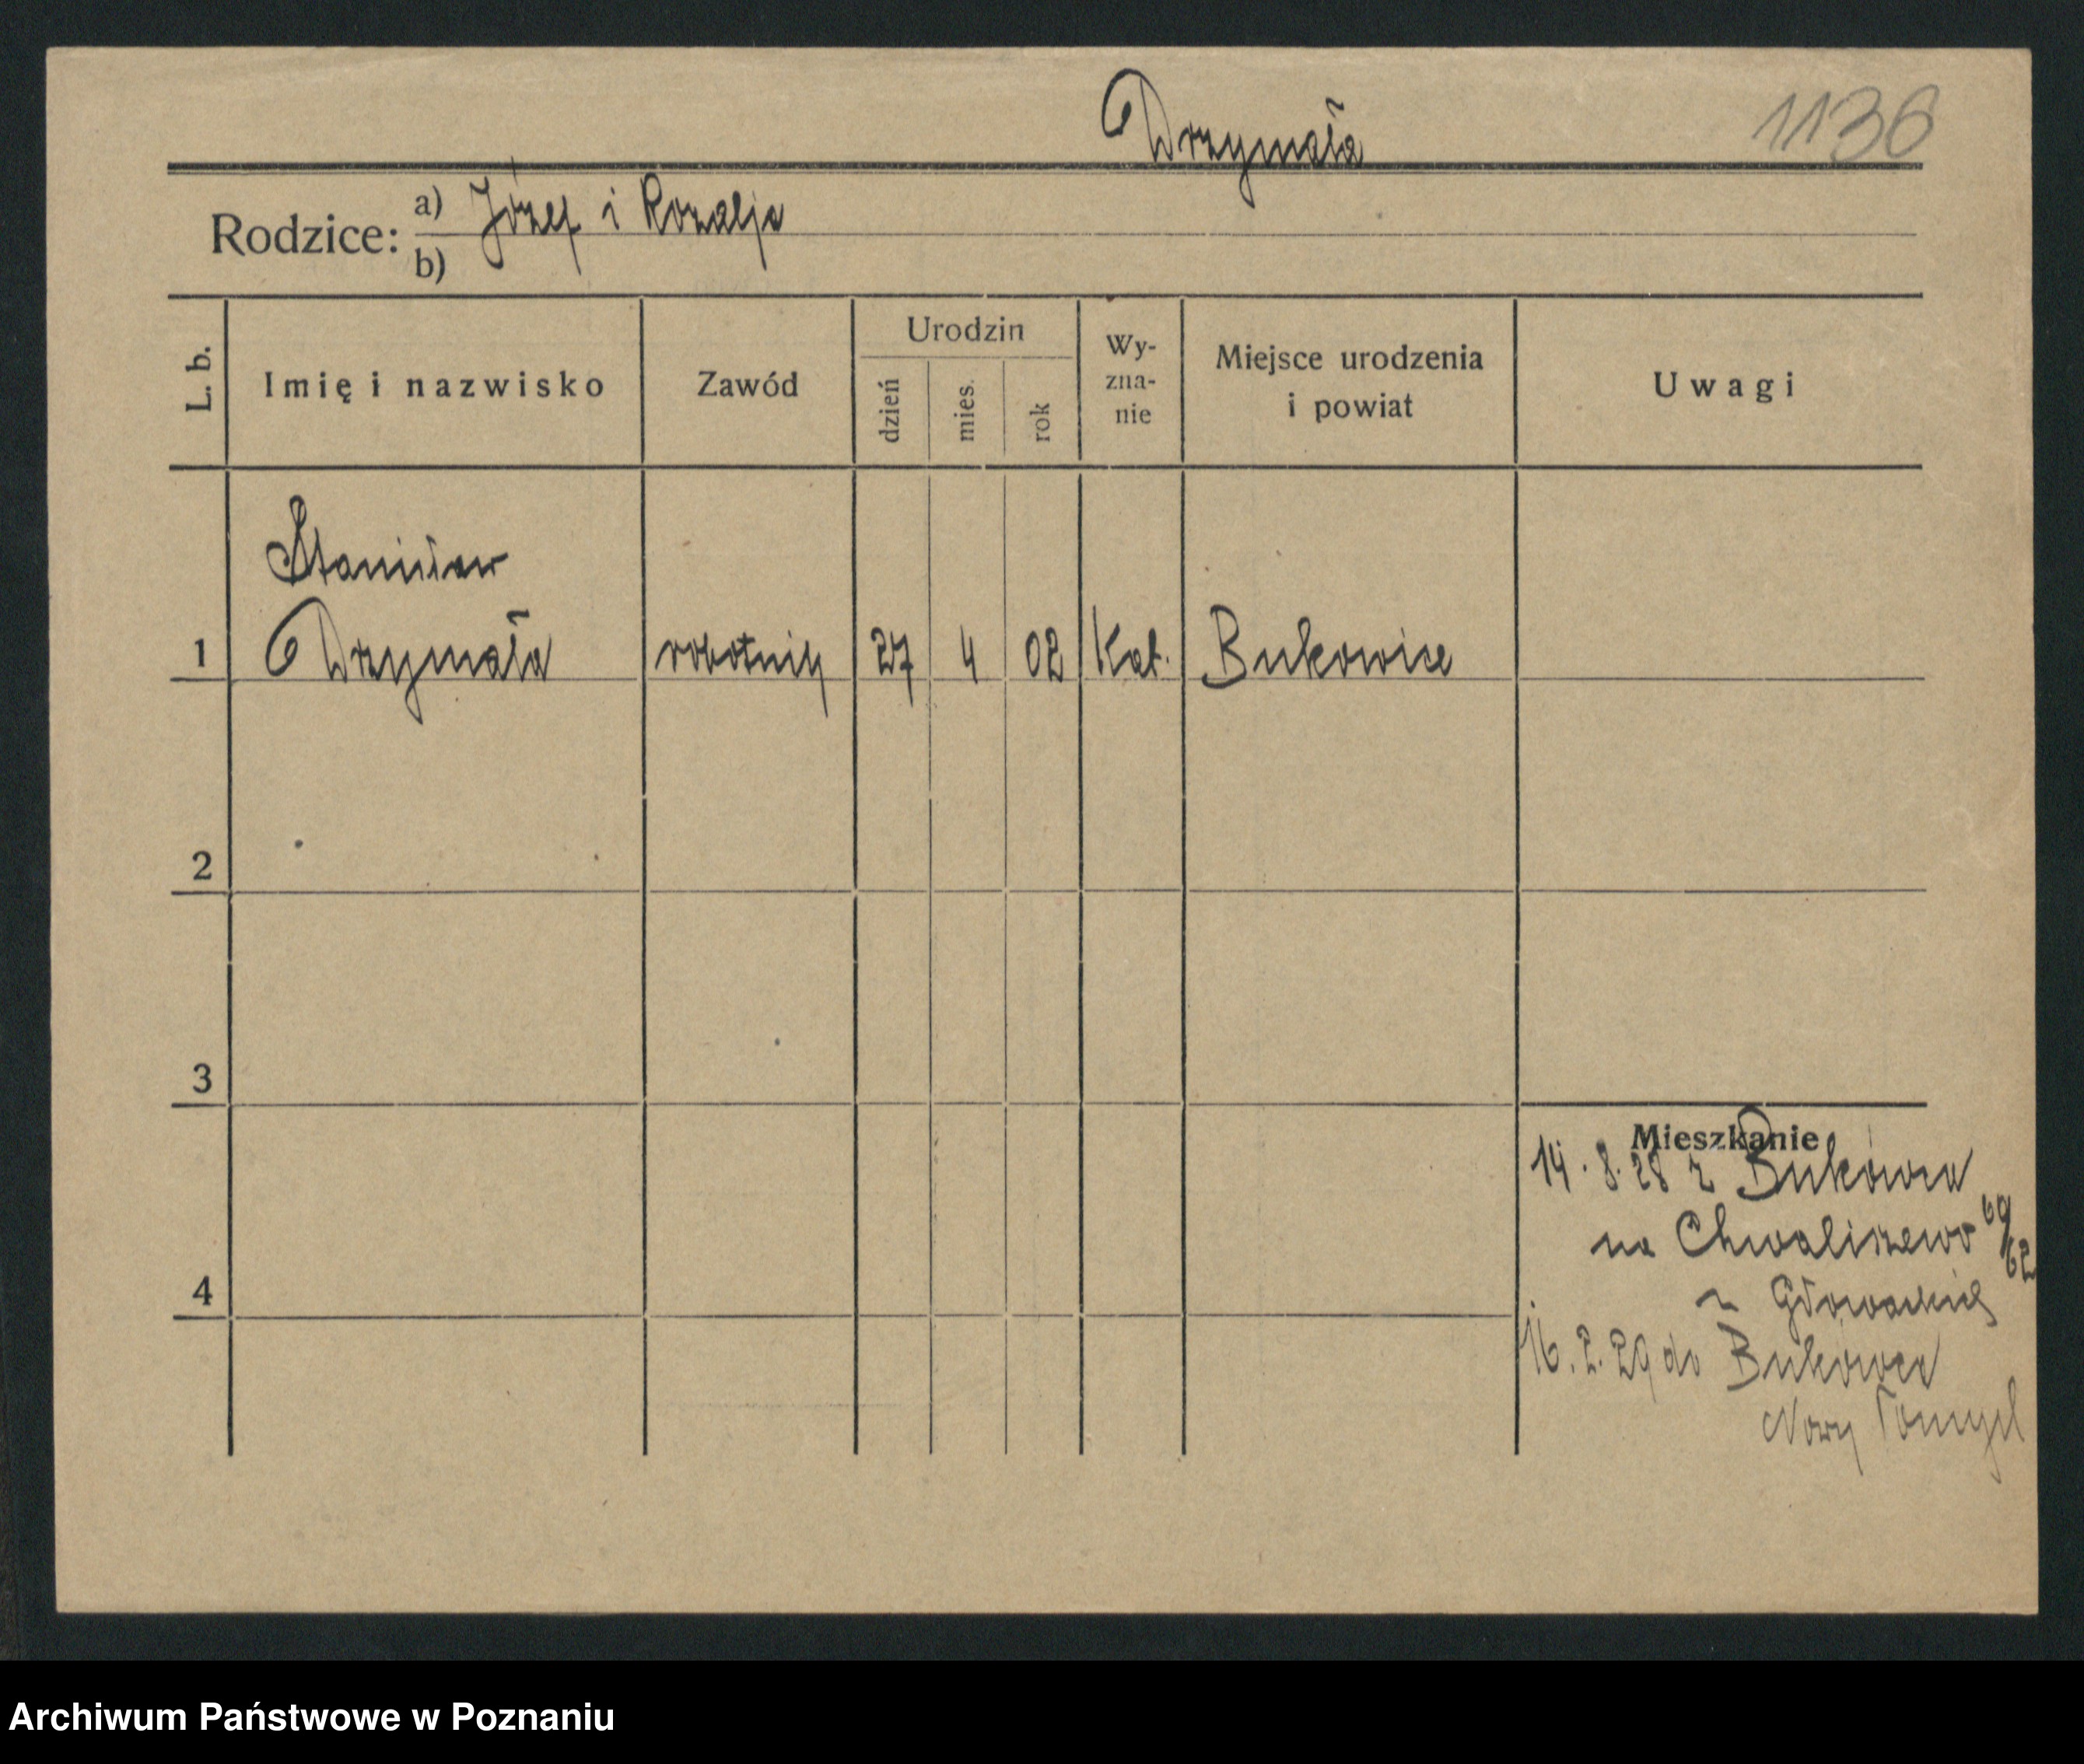 Drzymała
1136
Rodzice: a) Józef i Rozalja
b)
L. b.
Imię i nazwisko
Zawód
Urodzin
dzień
mies.
rok
Wy-
zna-
nie
Miejsce urodzenia
i powiat
Uwagi
Stanisław
1 Drzymała robotnik 27 4 02 Kat. Bukowice
2
3
4
Mieszkanie
14.8.28 z Bukowca
na Chwaliszewo 69/62
16.2.29 do Bukowca
Nowy Tomyśl
Archiwum Państwowe w Poznaniu